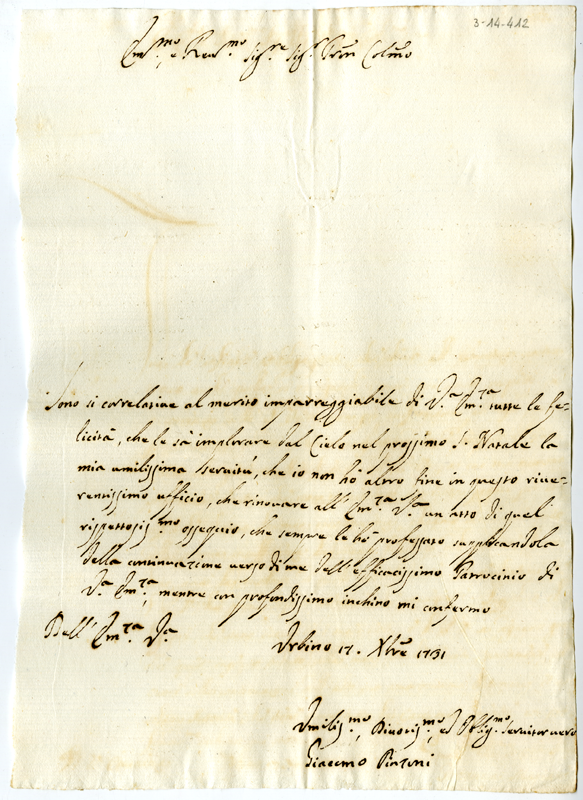 3-14-412
Em.mo, e Rev.mo Sig.re Sig.r Pron Colmo
Sono si correlative al merito impareggiabile di V.a Em.za tutte le fe-
licità, che le sà implorare dal Cielo nel prossimo S. Natale la
mia umilissima servitù, che io non hò altro fine in questo rive-
rentissimo ufficio, che rinovare all' Em.za V.a un atto di quel
rispettosis.mo ossequio, che sempre le hò professato supplicandola
della continuazione verso di me dell' efficacissimo Patrocinio di
V.a Em.za, mentre con profondissimo inchino mi confermo
Dell' Em.za V.a
Urbino 17. Xbre 1731
Umilis.mo, Divotis.mo, ed Obblig.mo Servitor vero
Giacomo